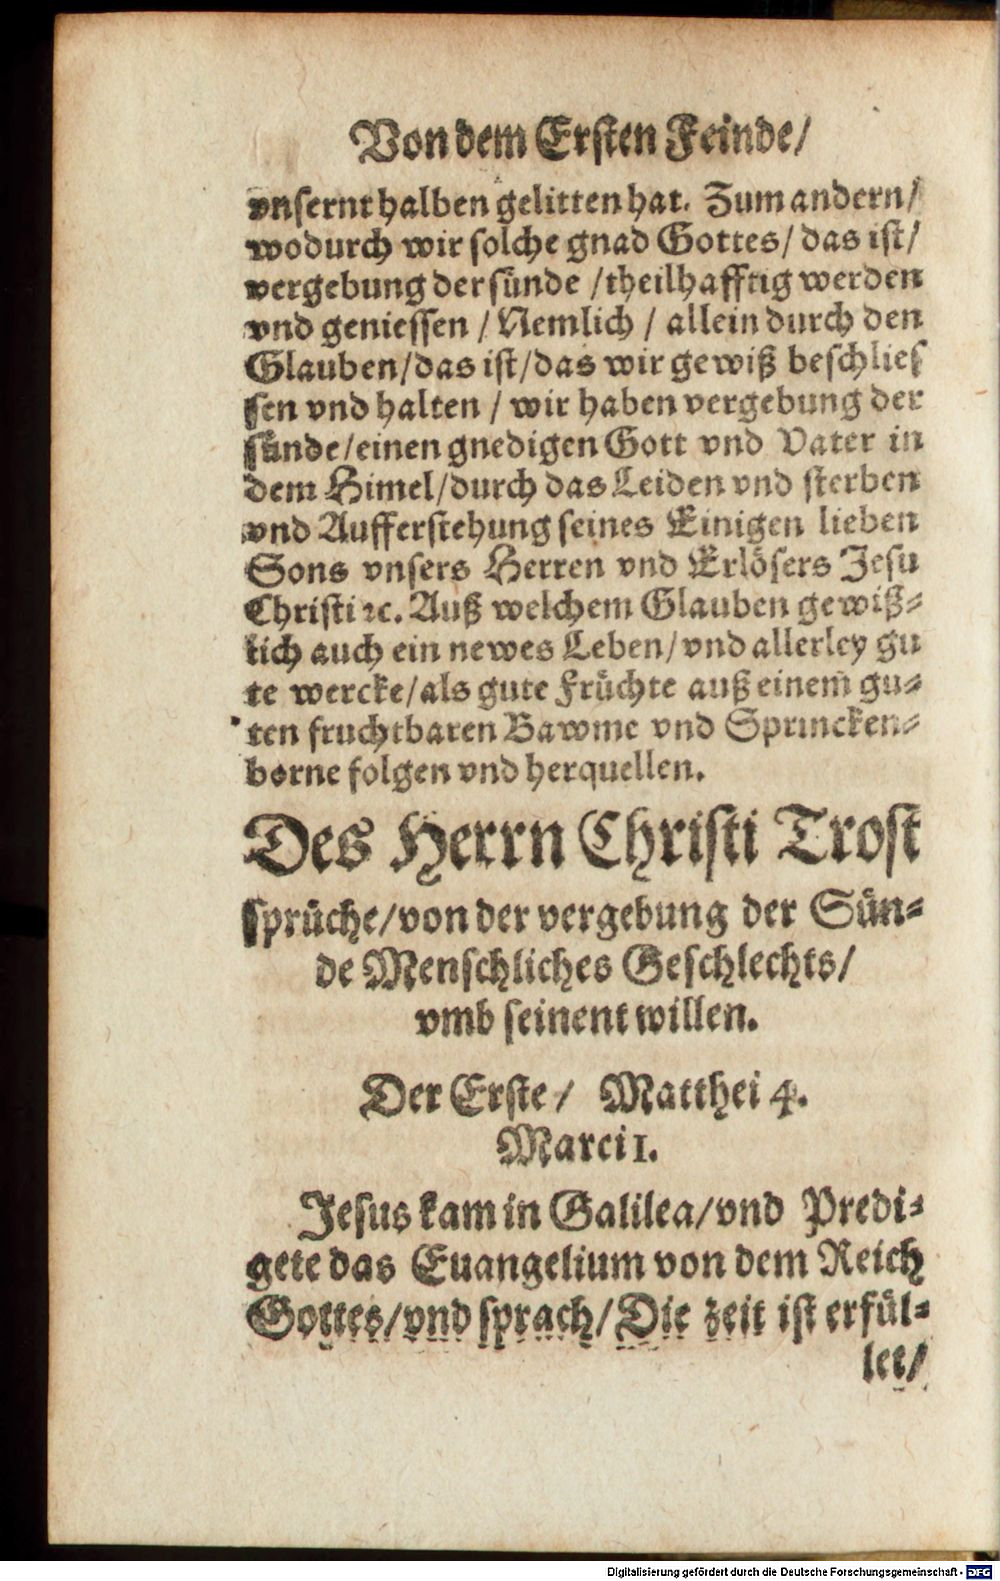 Von dem Ersten Feinde/
vnsernt halben gelitten hat. Zum andern/
wodurch wir solche gnad Gottes/ das ist/
vergebung der sünde /theilhafftig werden
vnd geniessen / Nemlich / allein durch den
Glauben/das ist/das wir gewiß beschlies
sen vnd halten / wir haben vergebung der
sünde/einen gnedigen Gott vnd Vater in
dem Himel/durch das Leiden vnd sterben
vnd Aufferstehung seines Einigen lieben
Sons vnsers Herren vnd Erlösers Jesu
Christi ꝛc. Auß welchem Glauben gewiß⸗
lich auch ein newes Leben/ vnd allerley gu
te wercke/als gute Früchte auß einem gu⸗
ten fruchtbaren Bawme vnd Sprincken⸗
borne folgen vnd herquellen.
Des Herrn Christi Trost
sprüche/von der vergebung der Sün⸗
de Menschliches Geschlechts/
vmb seinent willen.
Der Erste/ Matthei 4.
Marci 1.
Jesus kam in Galilea/vnd Predi⸗
gete das Euangelium von dem Reich
Gottes/vnd sprach/Die zeit ist erfül⸗
let/
Digitalisierung gefördert durch die Deutsche Forschungsgemeinschaft - DFG